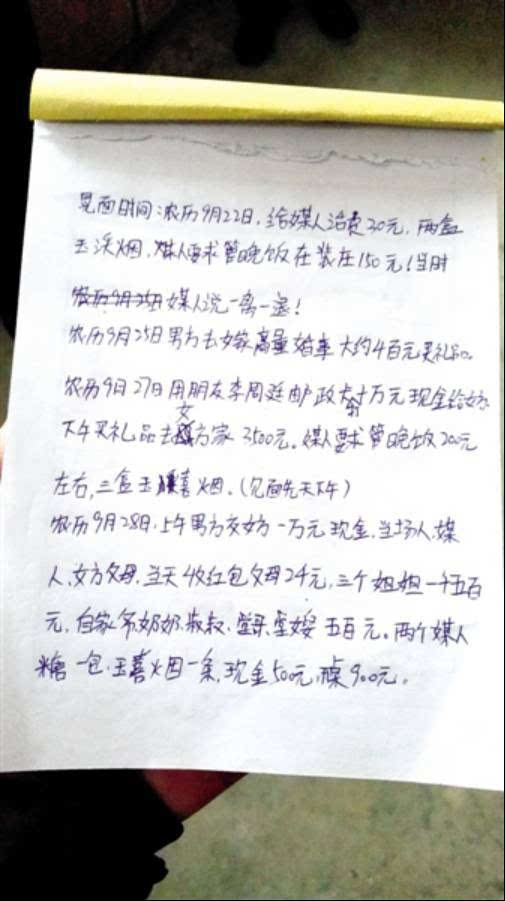 见面时间:农历9月22日,给媒人治费30元,两盒
玉溪烟,媒人要求管晚饭在装在150元!当时
农历9月25日媒人说一离一退!
农历9月25日男方去女家商量婚事大约4百元买礼品。
农历9月27日用朋友李周廷邮政卡打万元现金给女
下午买礼品去女方家3500元。媒人要求管晚饭200元
左右,三盒玉喜烟.(见面先天下午)
农历9月28日,上午男方交女方一万元现金,当场人,媒
人,女方父母,当天4收红包父母2千元,三个姐姐一千五百
元,自家爷奶奶,叔叔,堂哥,堂嫂五百元。两个媒人
糖一包,玉喜烟一条,现金500元,桌900元。